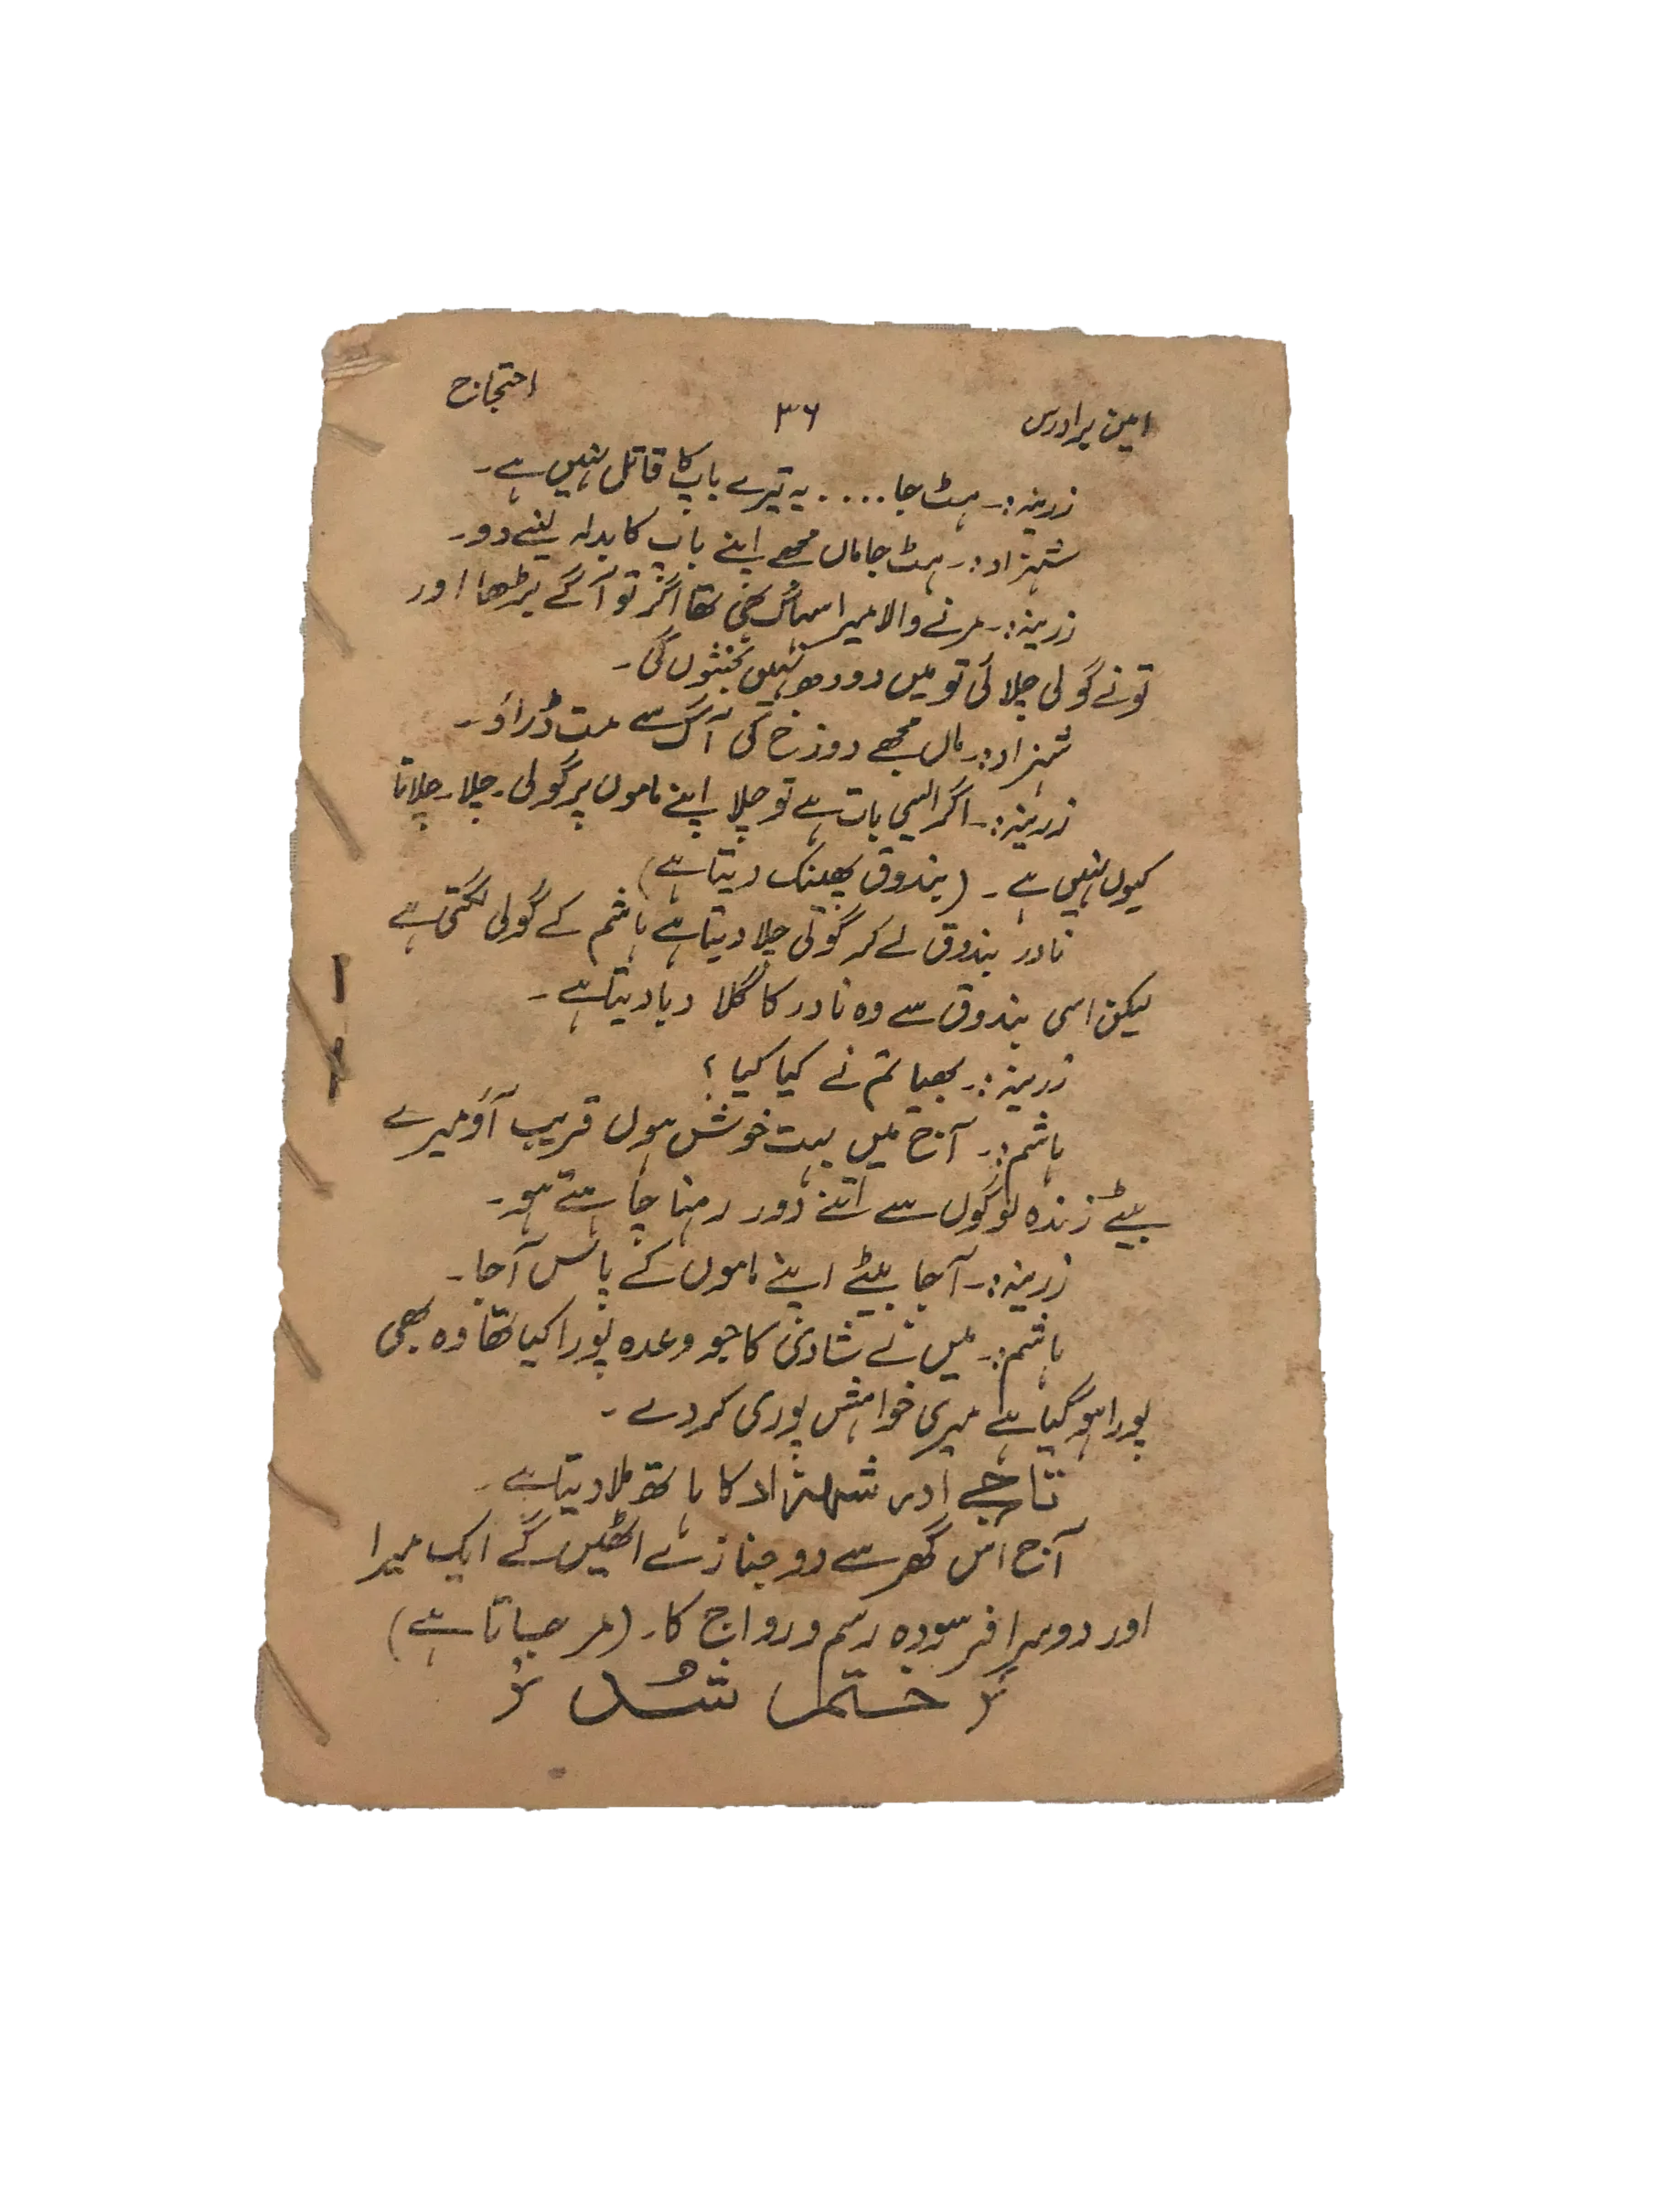 امین برادرس ۳۶ احتجاج
زرینہ:۔ ہٹ جا .... یہ تیرے باپ کا قاتل نہیں ہے۔
شہزاد:۔ ہٹ جا ماں مجھے اپنے باپ کا بدلہ لینے دو۔
زرینہ:۔ مرنے والا میرا سہاگ بھی تھا اگر تو آگے بڑھا اور
تو نے گولی چلائی تو میں دودھ نہیں بخشوں گی۔
شہزاد:۔ ماں مجھے دوزخ کی آگ سے مت ڈراؤ۔
زرینہ:۔ اگر ایسی بات ہے تو چلا اپنے ماموں پر گولی۔ چلا۔ چلاتا
کیوں نہیں ہے۔ (بندوق پھینک دیتا ہے)
نادر بندوق لے کر گولی چلا دیتا ہے ہاشم کے گولی لگتی ہے
لیکن اسی بندوق سے وہ نادر کا گلا دبا دیتا ہے۔
زرینہ:۔ بھیا تم نے کیا کیا؟
ہاشم:۔ آج میں بہت خوش ہوں قریب آؤ میرے
بیٹے زندہ لوگوں سے اتنے دور رہنا چاہتے ہو۔
زرینہ:۔ آجا بیٹے اپنے ماموں کے پاس آجا۔
ہاشم:۔ میں نے شادی کا جو وعدہ پورا کیا تھا وہ بھی
پورا ہوگیا ہے میری خواہش پوری کردے۔
تاجے اور شہزاد کا ہاتھ ملا دیتا ہے۔
آج اس گھر سے دو جنازے اٹھیں گے ایک میرا
اور دوسرا فرسودہ رسم و رواج کا۔ (مر جاتا ہے)
ختم شد